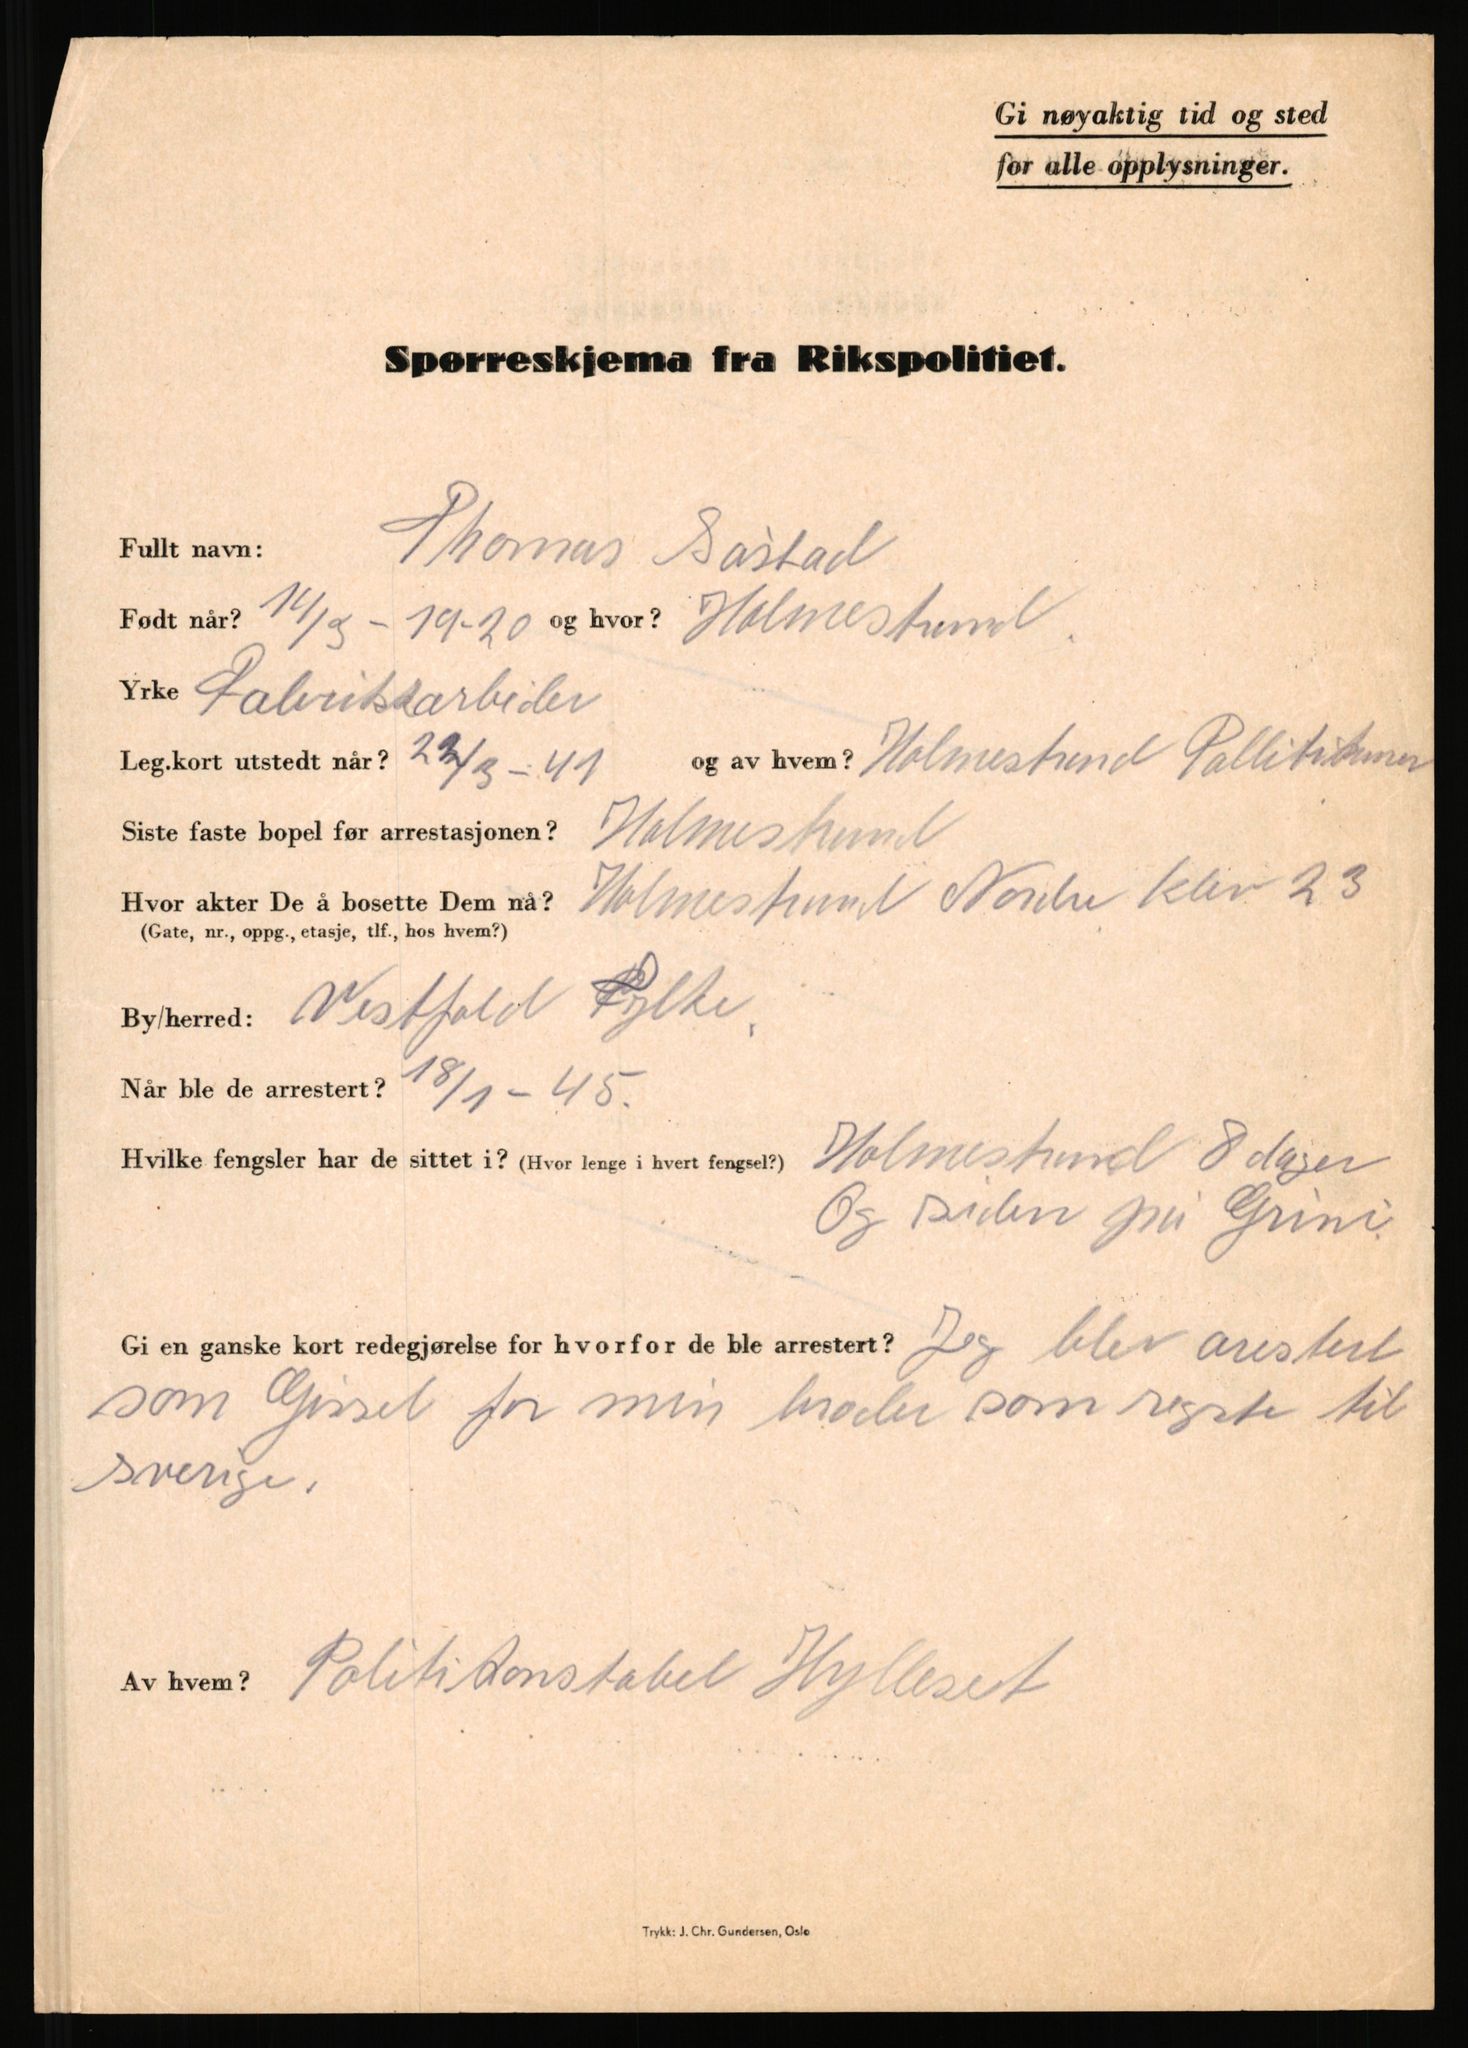 Gi nøyaktig tid og sted
for alle opplysninger.
Spørreskjema fra Rikspolitiet.
Fullt navn: Thomas Såstad
Født når? 14/3 - 19-20 og hvor? Holmestrand.
Yrke Fabrikkarbeider
Leg.kort utstedt når? 22/3 - 41 og av hvem? Holmestrand
Siste faste bopel før arrestasjonen? Holmestrand
Hvor akter De å bosette Dem nå? Holmestrand Nordre kleiv 23
(Gate, nr., oppg., etasje, tlf., hos hvem?)
By/herred: Vestfold Fylke.
Når ble de arrestert? 18/1 - 45.
Hvilke fengsler har de sittet i? (Hvor lenge i hvert fengsel?) Holmestrand 8 dager
Og siden på Grini.
Gi en ganske kort redegjørelse for hvorfor de ble arrestert? Jeg blev arestert
som Gissel for min broder som regste til
sverige.
Av hvem? Politikonstabel Hylleset
Trykk: J. Chr. Gundersen, Oslo